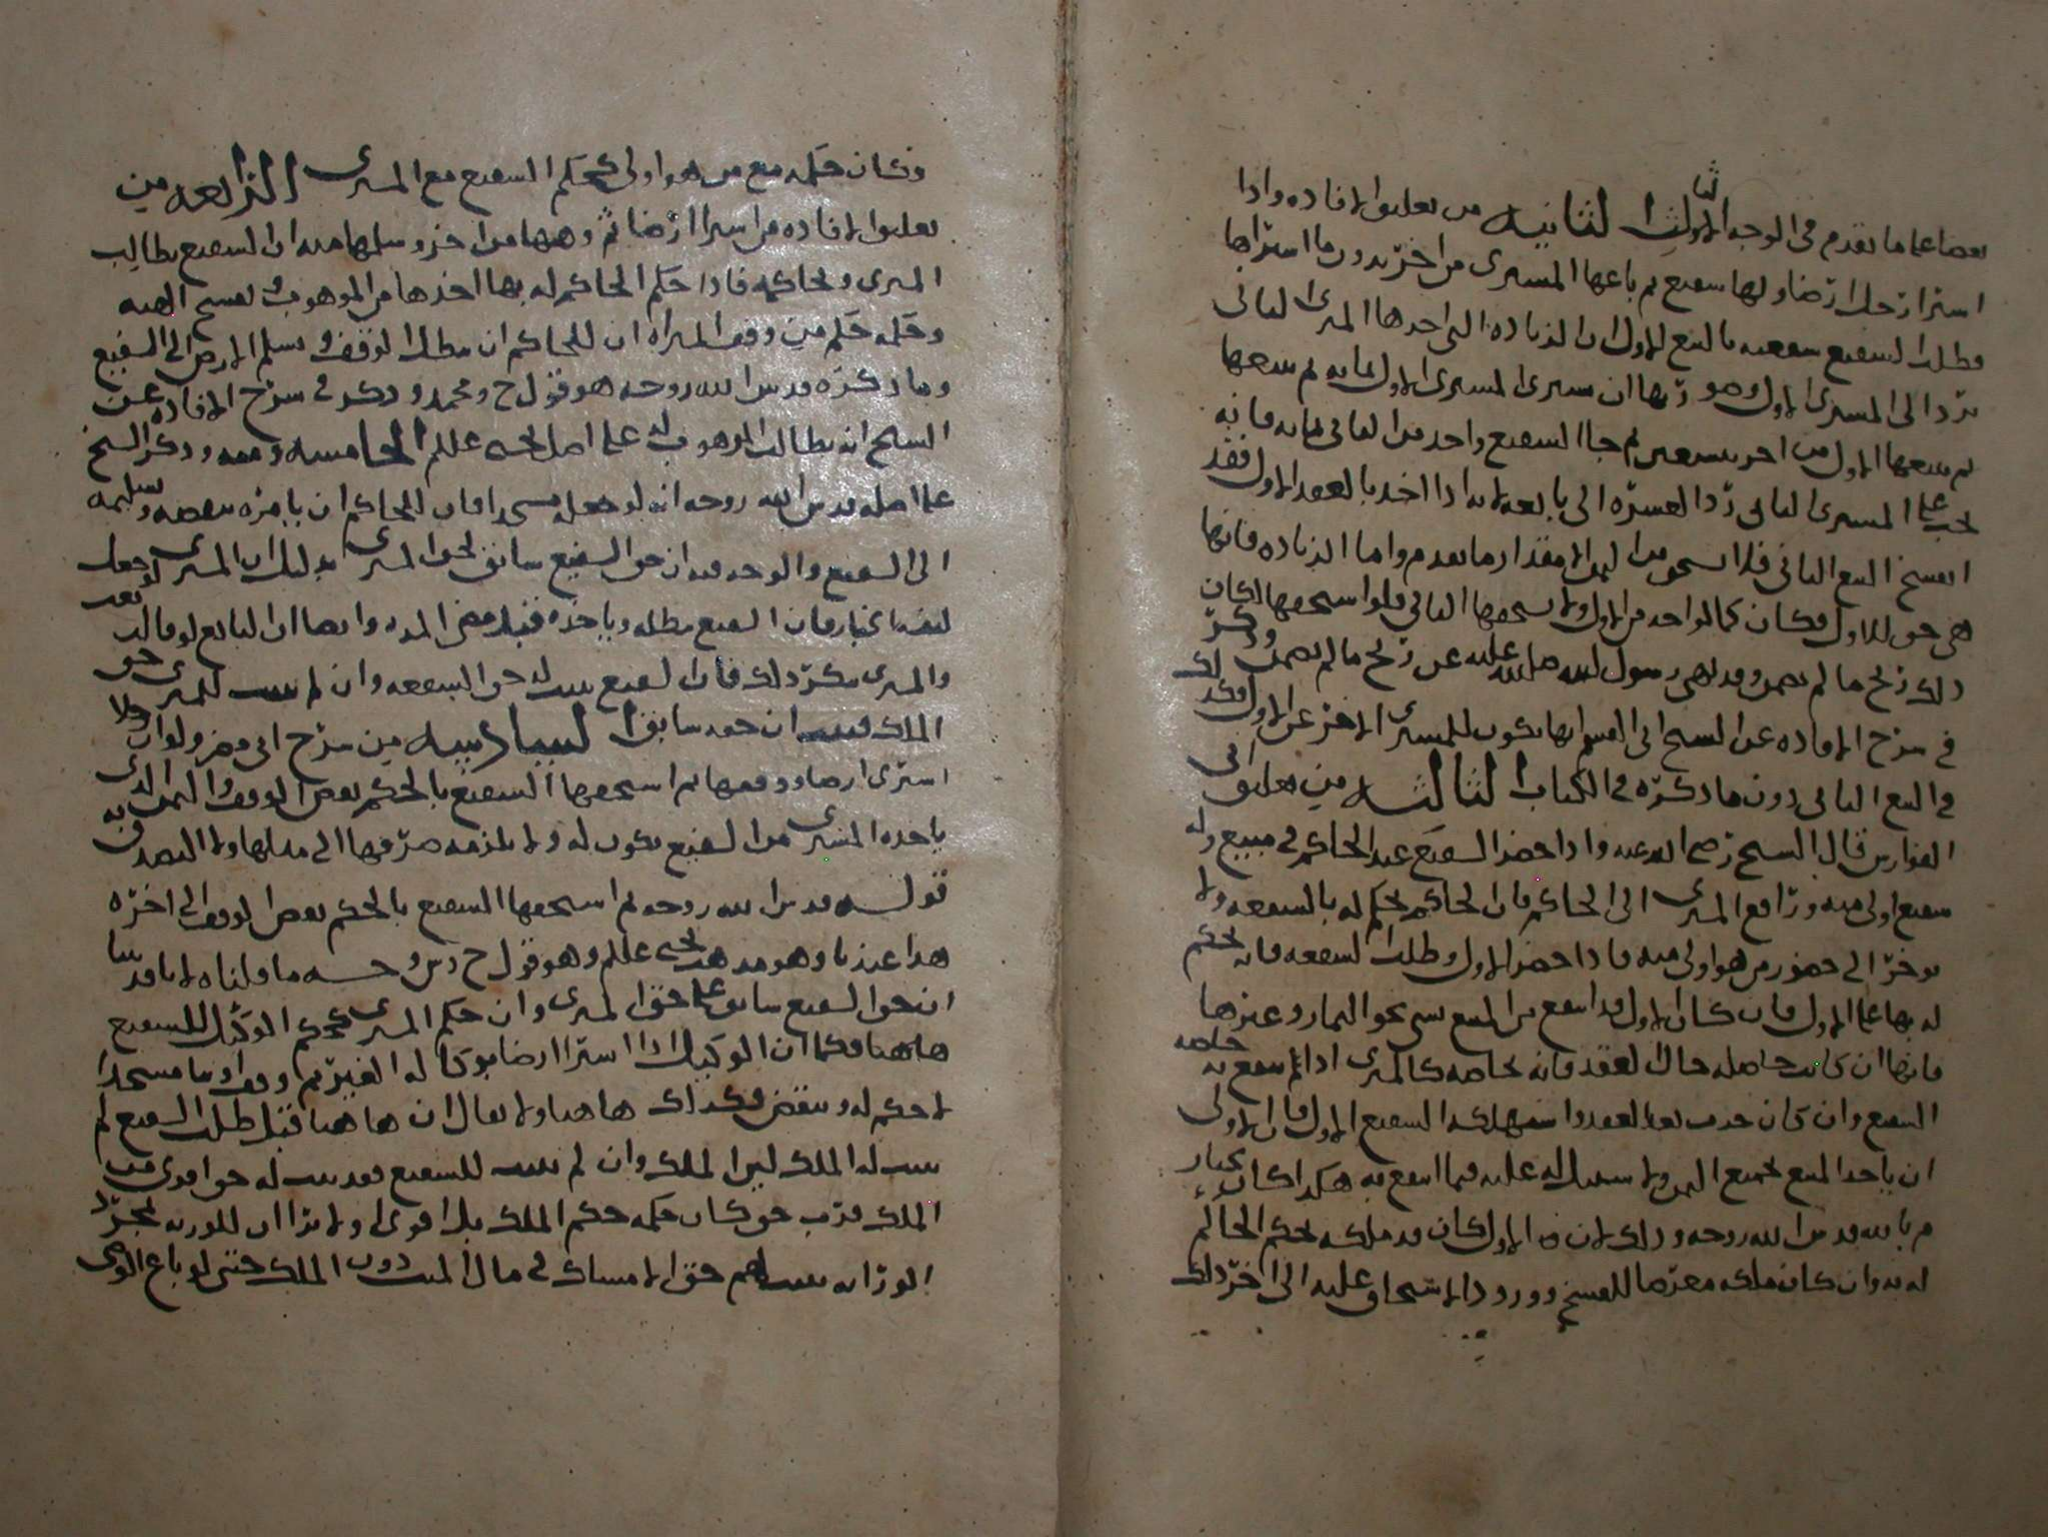 بعضا على ما تقدم في الوجه الاول الثانيه من تعليق الافاده واذا
اسرا رجل ارضا ولها شفيع ثم باعها المسري من اخر بدون ما اشتراها
وطلب الشفيع شفعته بالبيع الاول ان الزياده التي اخذها المسري الثاني
ترد الى المسري الاول وصورتها ان سرى المسري الاول بمايه ثم يبيعها
ثم يبيعها الاول من اخر بتسعين ثم جا الشفيع واخذ من الثاني بمايه فانه
يجب على المسري الثاني رد العشره الى بايعه لانه اذا اخذ بالعقد الاول فقد
انفسخ البيع الثاني فلا يستحق من الثمن الا مقدار ما تقدم واما الزياده فانها
هي حق للاول وكان كما لو اخذ من الاول ولا يستحقها الثاني ولو استحقها لكان
ذلك ربح ما لم يضمن وقد نهى رسول الله صلى الله عليه عن ربح ما لم يضمن وذكر
في شرح الافاده عن الشيخ ابي القسم انها تكون للمسري الاخر عن الاول
في البيع الثاني دون ما ذكره في الكتاب الثالثه من تعليق ابي
الفوارس قال الشيخ رضي الله عنه واذا حضر الشفيع عند الحاكم في مبيع وله
شفيع اولى منه ورافع المسري الى الحاكم فان الحاكم يحكم له بالشفعه ولا
يوخر الى حضور من هو اولى منه فاذا حضر الاول وطلب الشفعه فانه يحكم
له بها على الاول فان كان الاول قد انتفع من المبيع بشي نحو الثمار وغيرها
فانها ان كانت حاصله حال العقد فانه يحاصه كالمسري اذا لم ينتفع به
الشفيع وان كان حدث بعد العقد واستهلكه الشفيع الاول فان الاولى
ان ياخذ المبيع بجميع الثمن ولا سبيل له عليه فيما انتفع به هكذا كان يختار
م بالله قدس الله روحه وذلك لان الاول كان قد ملكه بحكم الحاكم
له به وان كان ملكه معرضا للفسخ وورود الاستحقاق عليه الى اخر ذلك
وكان حكمه مع من هو اولى كحكم الشفيع مع المسري الرابعه من
تعليق الافاده من اسرا ارضا ثم وهبها من اخر وسلمها منه ان الشفيع يطالب
المسري ويحاكمه فاذا حكم الحاكم له بها اخذها من الموهوب له وتفسخ الهبه
وحكمه حكم من وقف المشراه ان للحاكم ان يبطل الوقف ويسلم الارض الى الشفيع
وما ذكره قدس الله روحه هو قول ح ومحمد وذكر في شرح الافاده عن
الشيخ انه يطالب الموهوب له على اصل يحيى عللم الخامسه ومنه وذكر الشيخ
على اصله قدس الله روحه انه لو جعله مسجدا فان للحاكم ان يامره بنقضه وتسليمه
الى الشفيع والوجه فيه ان حق الشفيع سابق لحق المسري بدليل ان المسري لو جعل
لنفسه الخيار فان الشفيع يبطله وياخذه قبل مضي المده وايضا ان البايع لو قال بعت
والمسري ينكر ذلك فان الشفيع يثبت له حق الشفعه وان لم يثبت للمسري حق
الملك فثبت ان حقه سابق السادسه من شرح ابي مضر ولو ان رجلا
اسرى ارضا ووقفها ثم استحقها الشفيع بالحكم نقض الوقف والثمن الذي
ياخذه المسري من الشفيع يكون له ولا يلزمه صرفها الى مثلها ولا التصدق به
قوله قدس الله روحه ثم استحقها الشفيع بالحكم نقض الوقف الى اخره
هذا عندنا وهو مذهب يحيى عللم وهو قول ح وش و حجته ما قلناه لانا قد بينا
ان حق الشفيع سابق على حق المسري وان حكم المسري كحكم الوكيل للشفيع
هاهنا فكما ان الوكيل اذا اسرا ارضا موكلا له الغير ثم وقف او بنا مسجدا
لا حكم له وينقض فكذلك هاهنا ولا يقال ان هاهنا قبل طلب الشفيع لم
يثبت له الملك لان الملك وان لم يثبت للشفيع فقد ثبت له حق اقوى من
الملك فرب حق كان حكمه حكم الملك بل اقوى اولا ترا ان للورثه بمجرد
الوراثه يثبت لهم حق الامساك في مال الميت دون الملك حتى لو باع الوصي